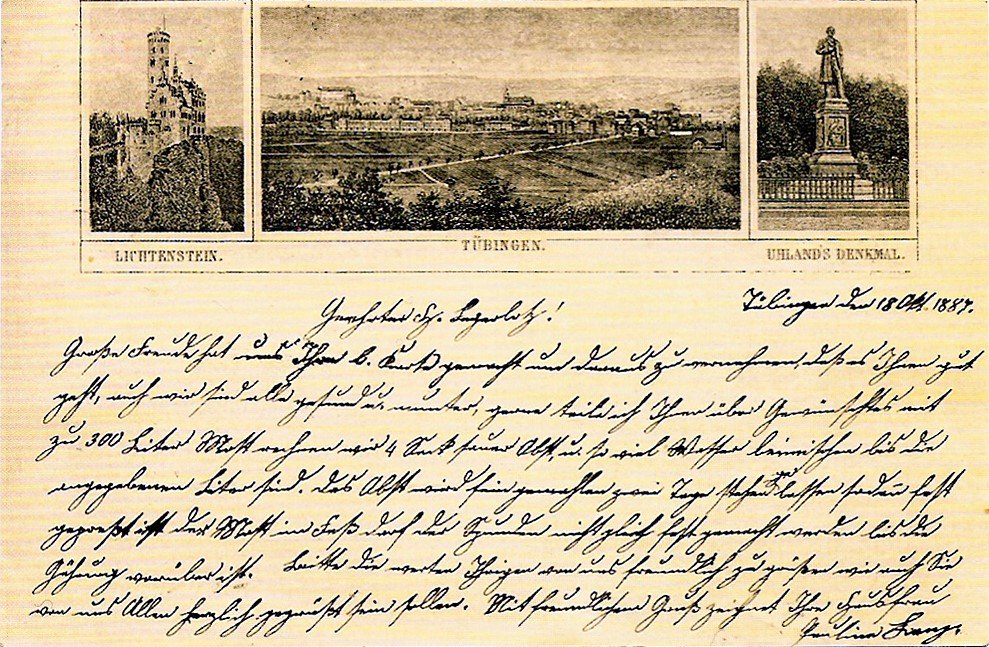 LICHTENSTEIN.
TÜBINGEN.
UHLAND'S DENKMAL.
Tübingen den 18 Okt. 1887.
Geehrter H.
Große Freude hat uns Ihre l. Karte gemacht und daraus zu vernehmen, daß es Ihnen gut
geht, auch wir sind alle gesund u. munter, gerne teile ich Ihnen über Gewünschtes mit
zu 300 Liter Most rechnen wir 4 Sack sauer Obst, u. so viel Wasser bis die
angegebenen Liter sind. Das Obst wird fein gemahlen zwei Tage stehen lassen sodan fest
gepreßt ist der Most im Faß darf der Spunden nicht gleich fest gemacht werden bis die
Gährung vorüber ist. Bitte die werten Ihrigen von uns freundlich zu grüßen wie auch Sie
von uns Allen herzlich gegrüßt sein sollen. Mit freundlichem Gruß zeichnet Ihre Hausfrau
Pauline